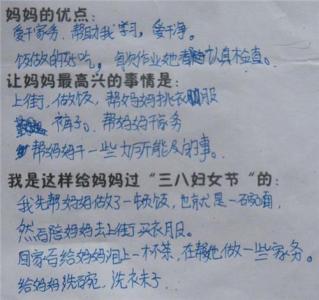 妈妈的优点：
爱干家务，帮助我学习，爱干净。
饭做的好吃，每次作业她都认真检查。
让妈妈最高兴的事情是：
上街，做饭，帮妈妈挑衣服
裤子。帮妈妈干家务
帮妈妈干一些力所能及的事。
我是这样给妈妈过“三八妇女节”的：
我先帮妈妈做了一顿饭，也就是一碗面，
然后陪妈妈去上街买衣服。
回家后给妈妈泡上一杯茶，在帮她做一些家务。
给妈妈洗碗，洗衣未子